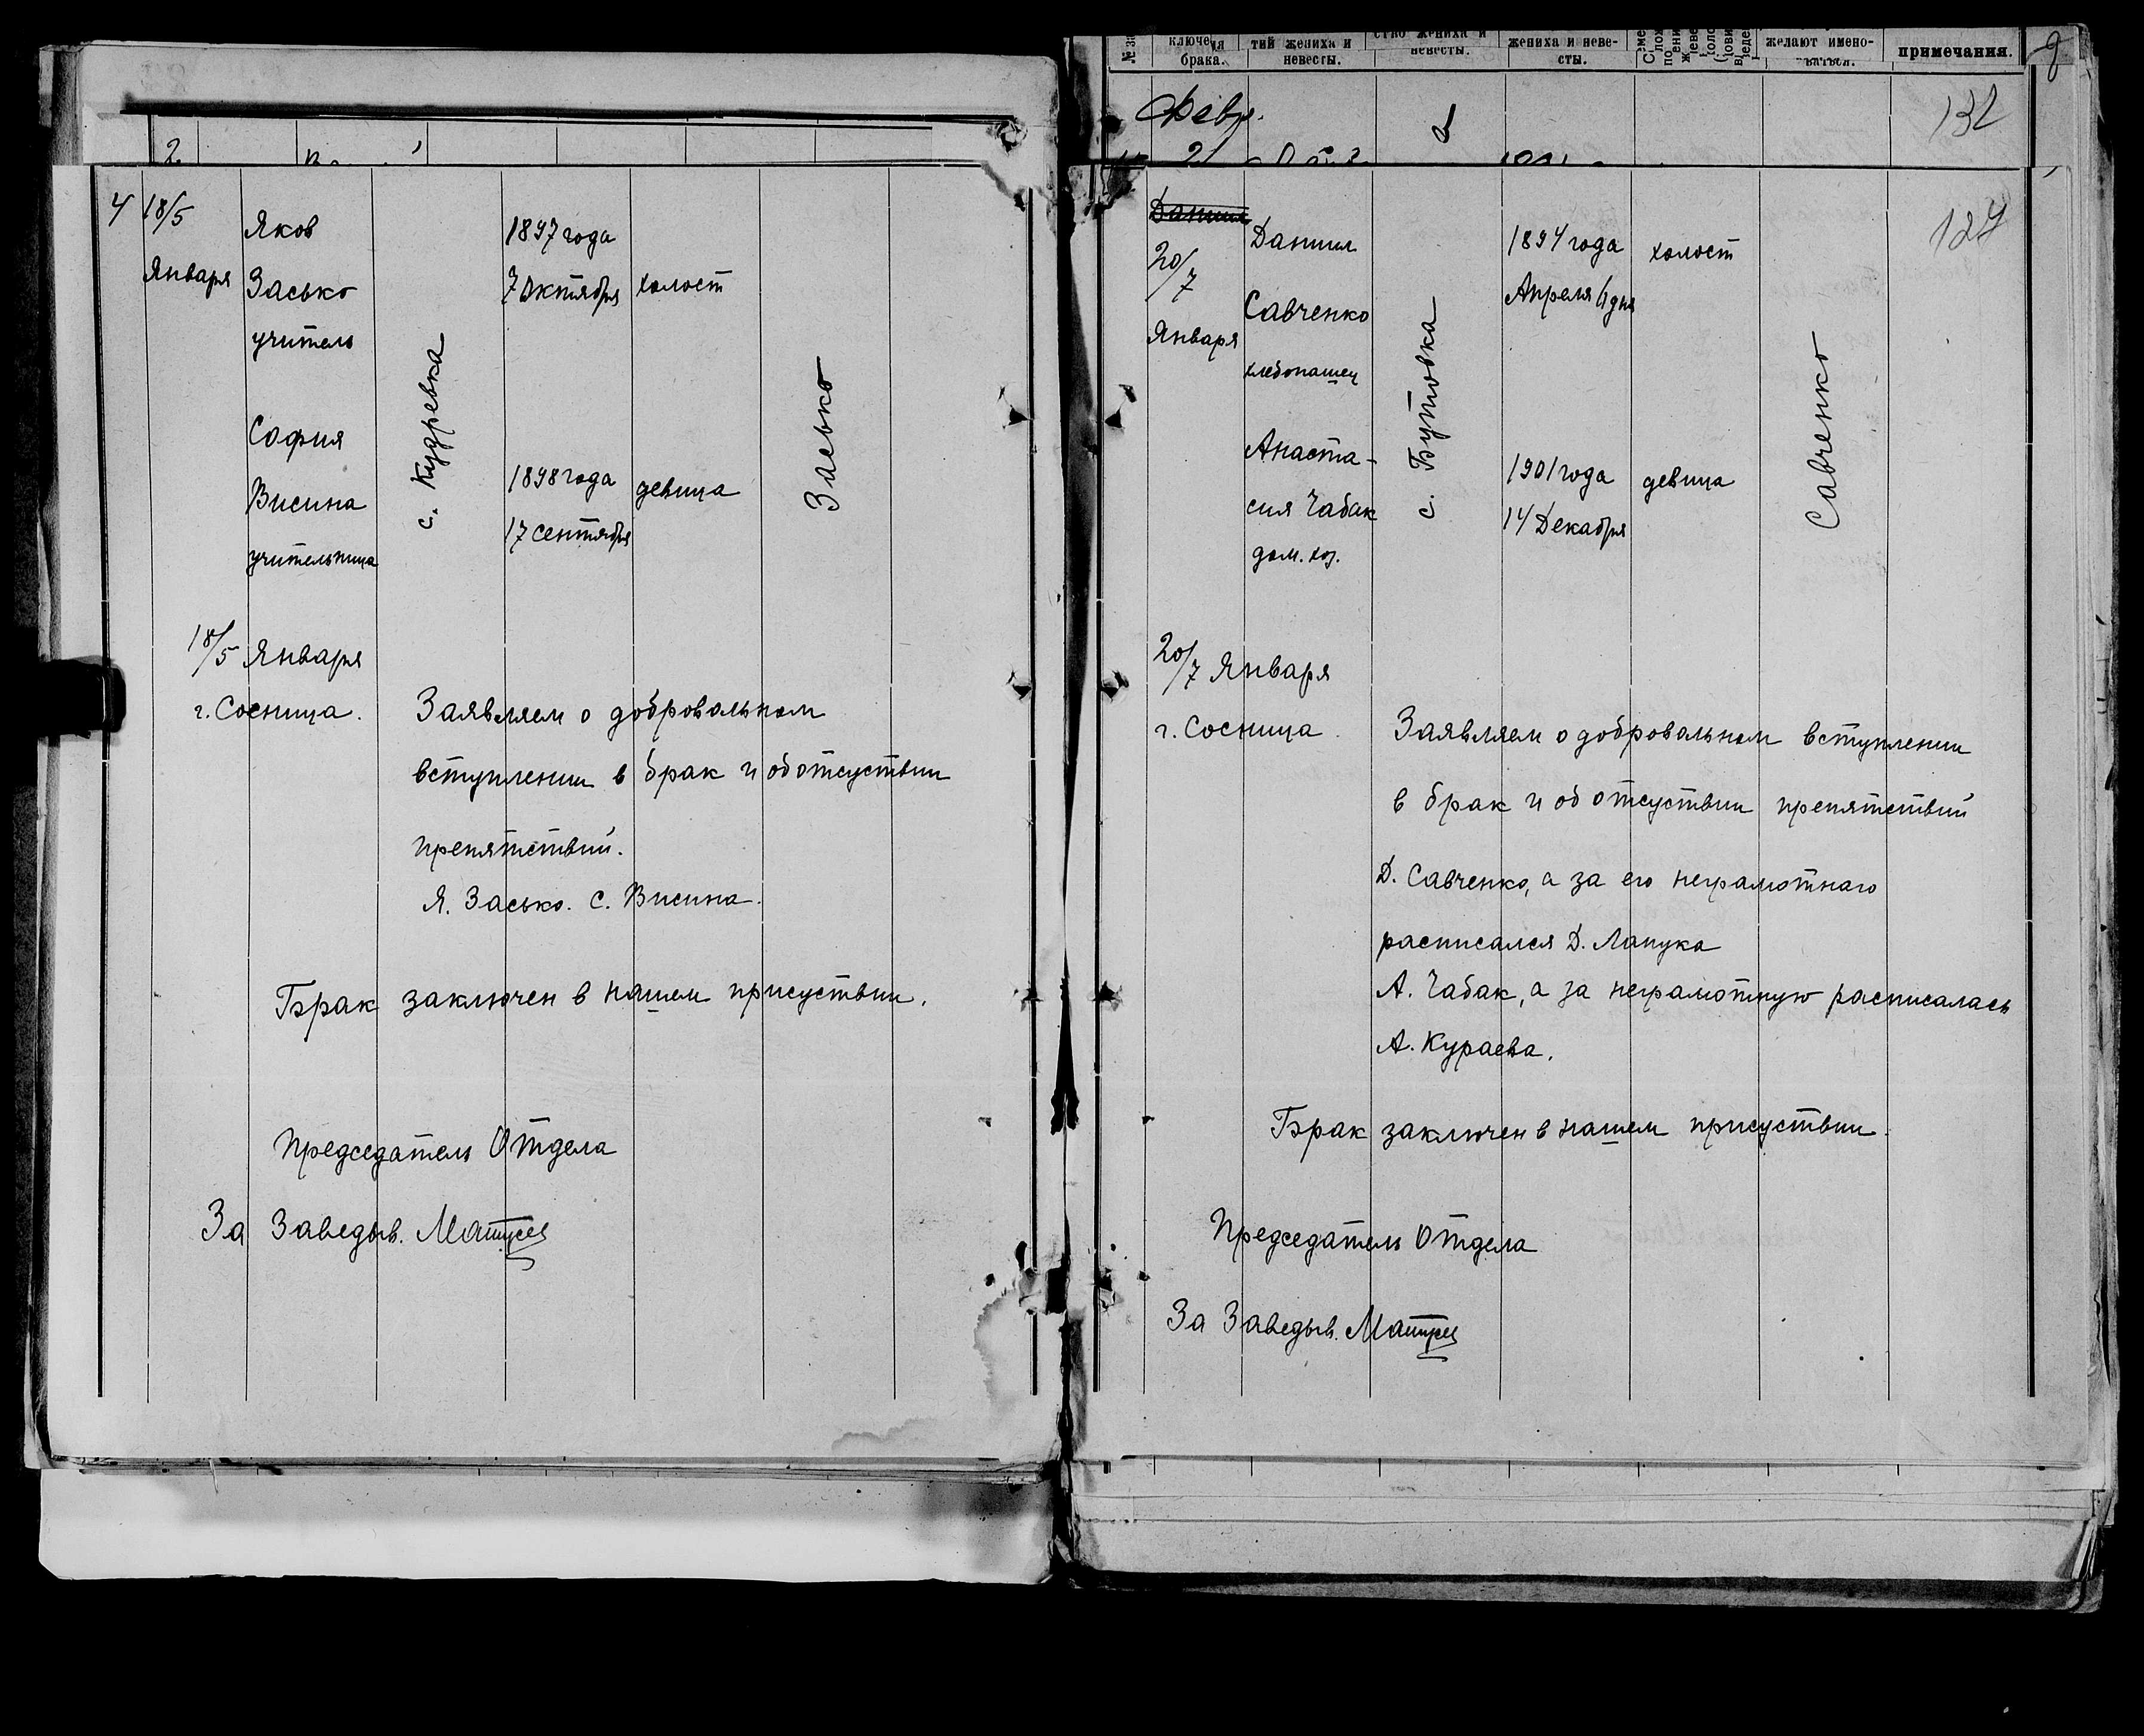 4 18/5
Января
Яков
Засько
учитель
София
Висина
учительница
с. Кудревка
1897 года
7 Октября
холост
1898 года
17 сентября
девица
Засько
18/5 Января
г. Сосница.
Заявляем о добровольном
вступлении в брак и об отсуствии
препятствий.
Я. Засько. С. Висина.
Брак заключен в нашем присуствии.
Председатель Отдела
За Заведыв.
ключения
брака.
тий жениха и
невесты.
ство жениха и
невесты.
жениха и неве-
сты.
желают имено-
ваться.
примечания.
Февр.
132
127
Даниил
20/7
Января
Даниил
Савченко
хлебопашец
Анаста-
сия Чабак
дом. хоз.
с. Бутовка
1894 года
Апреля
холост
1901 года
14 Декабря
девица
Савченко
20/7 Января
г. Сосница.
Заявляем о добровольном вступлении
в брак и об отсуствии препятствий
Д. Савченко, а за его неграмотнаго
расписался Д. Лапука
А. Чабак, а за неграмотную расписалась
А. Кураева.
Брак заключен в нашем присуствии.
Председатель Отдела
За Заведыв.